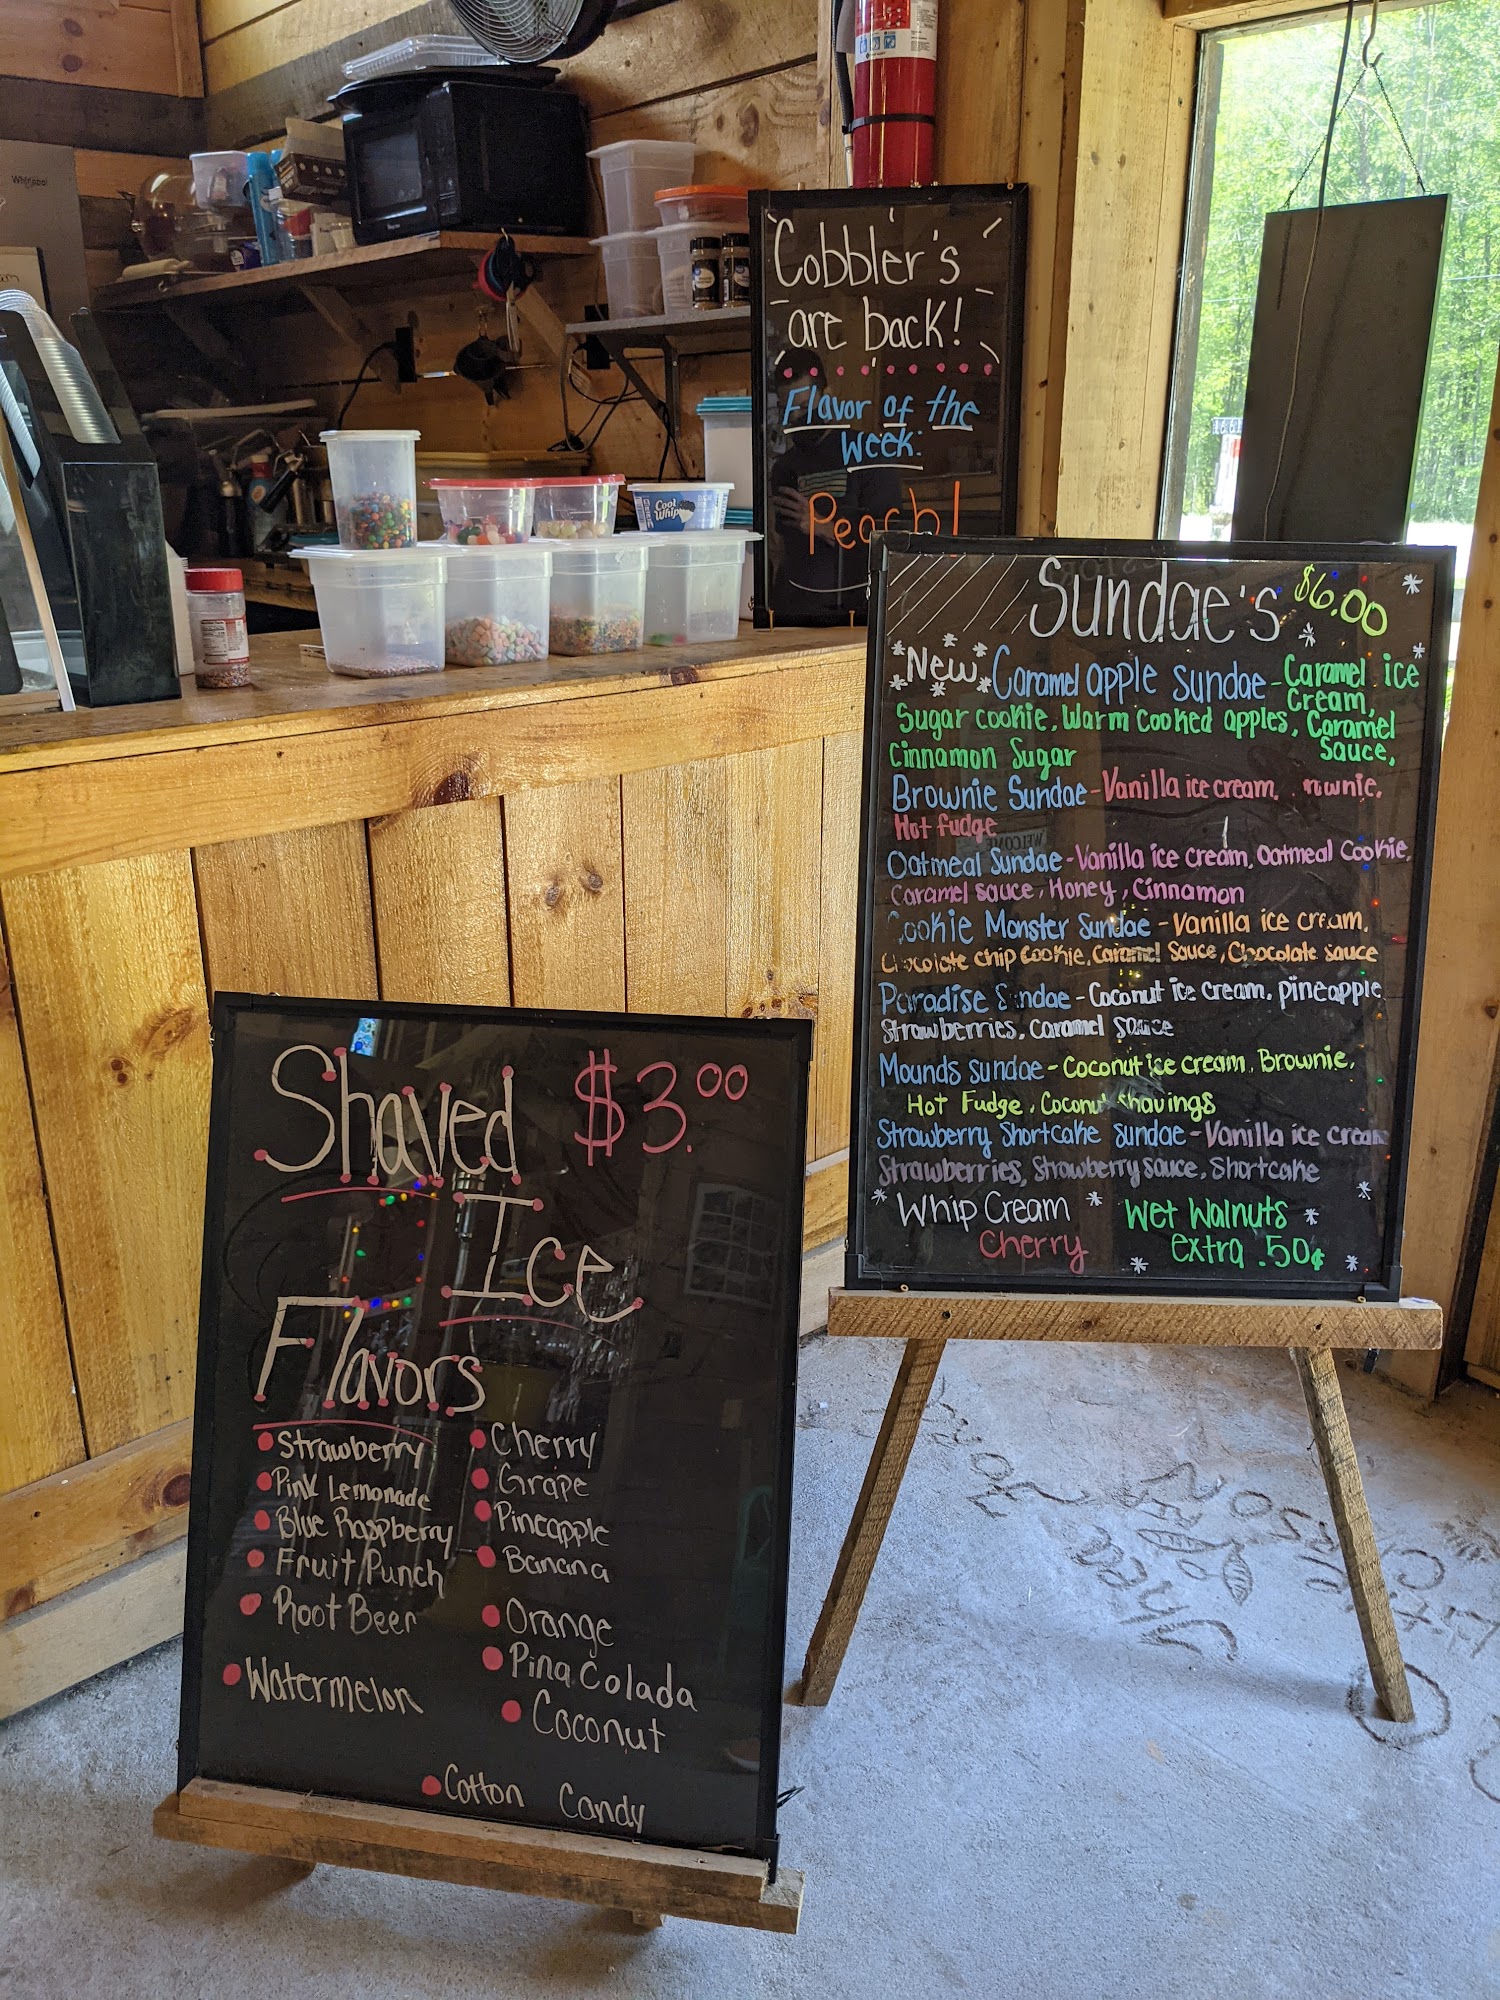 Whirlpool
Cool Whip
Cobbler's
are back!
Flavor of the
week:
Peach!
Sundae's $6.00
New Caramel apple sundae - Caramel ice
Cream,
Sugar cookie, Warm cooked apples, Caramel
Sauce,
Cinnamon Sugar
Brownie Sundae - Vanilla ice cream,
Hot fudge
Oatmeal Sundae - Vanilla ice cream, Oatmeal Cookie,
Caramel sauce, Honey, Cinnamon
Cookie Monster Sundae - Vanilla ice cream,
Chocolate chip Cookie, Caramel Sauce, Chocolate sauce
Paradise Sundae - Coconut ice cream, pineapple
Strawberries, Caramel Sauce
Mounds sundae - Coconut ice cream, Brownie,
Hot Fudge, Coconut shavings
Strawberry Shortcake Sundae - Vanilla ice cream
Strawberries, Strawberry sauce, Shortcake
Whip Cream
Cherry
Wet Walnuts
extra .50¢
Shaved $3.00
Ice
Flavors
Strawberry
Pink Lemonade
Blue Raspberry
Fruit Punch
Root Beer
Watermelon
Cherry
Grape
Pineapple
Banana
Orange
Pina Colada
Coconut
Cotton Candy